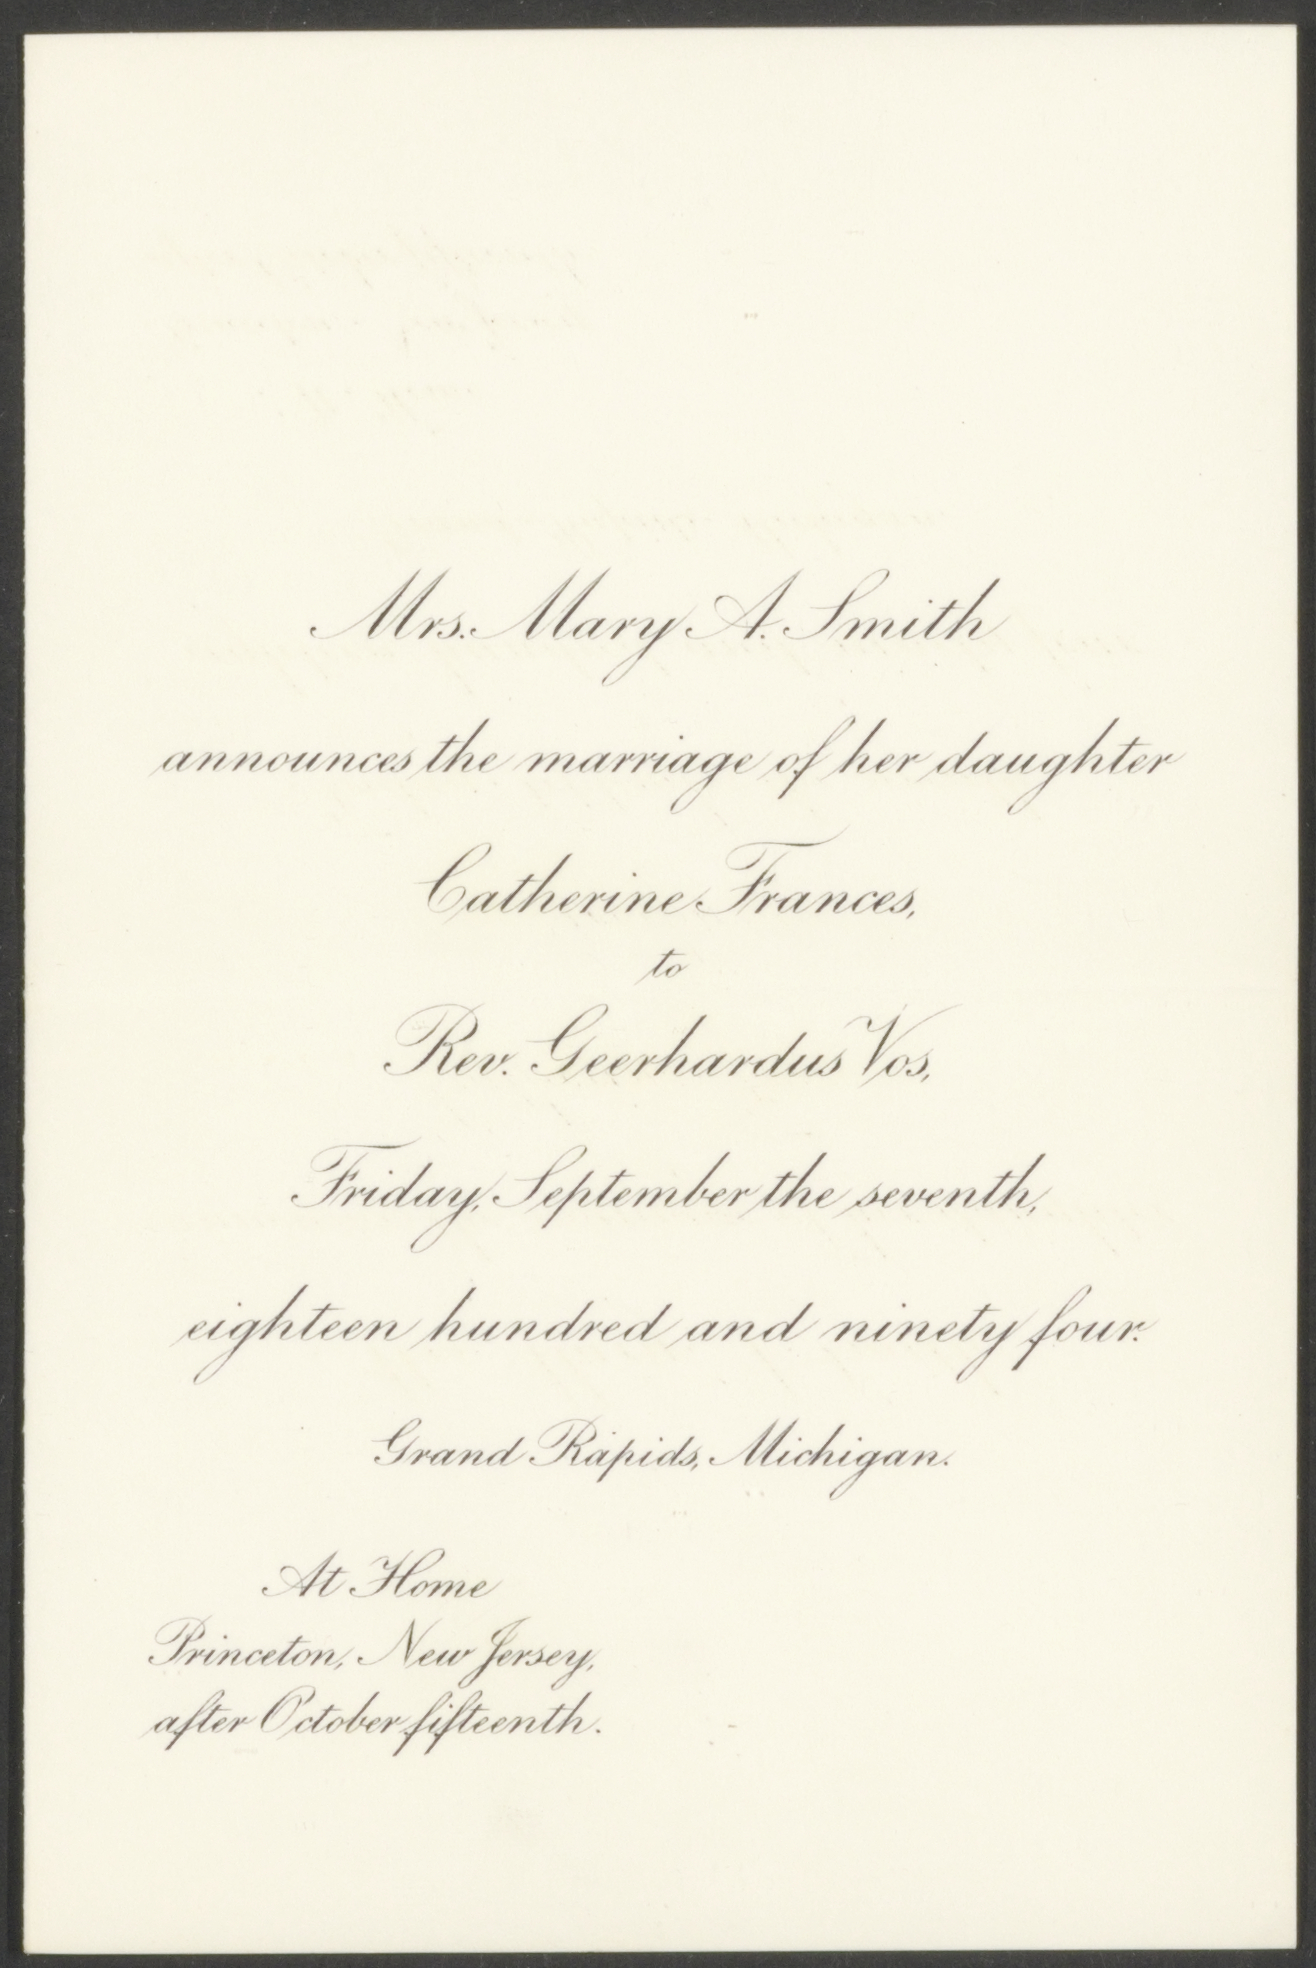 Mrs. Mary A. Smith
announces the marriage of her daughter
Catherine Frances,
to
Rev. Geerhardus Vos,
Friday, September the seventh,
eighteen hundred and ninety four.
Grand Rapids, Michigan.
At Home
Princeton, New Jersey,
after October fifteenth.